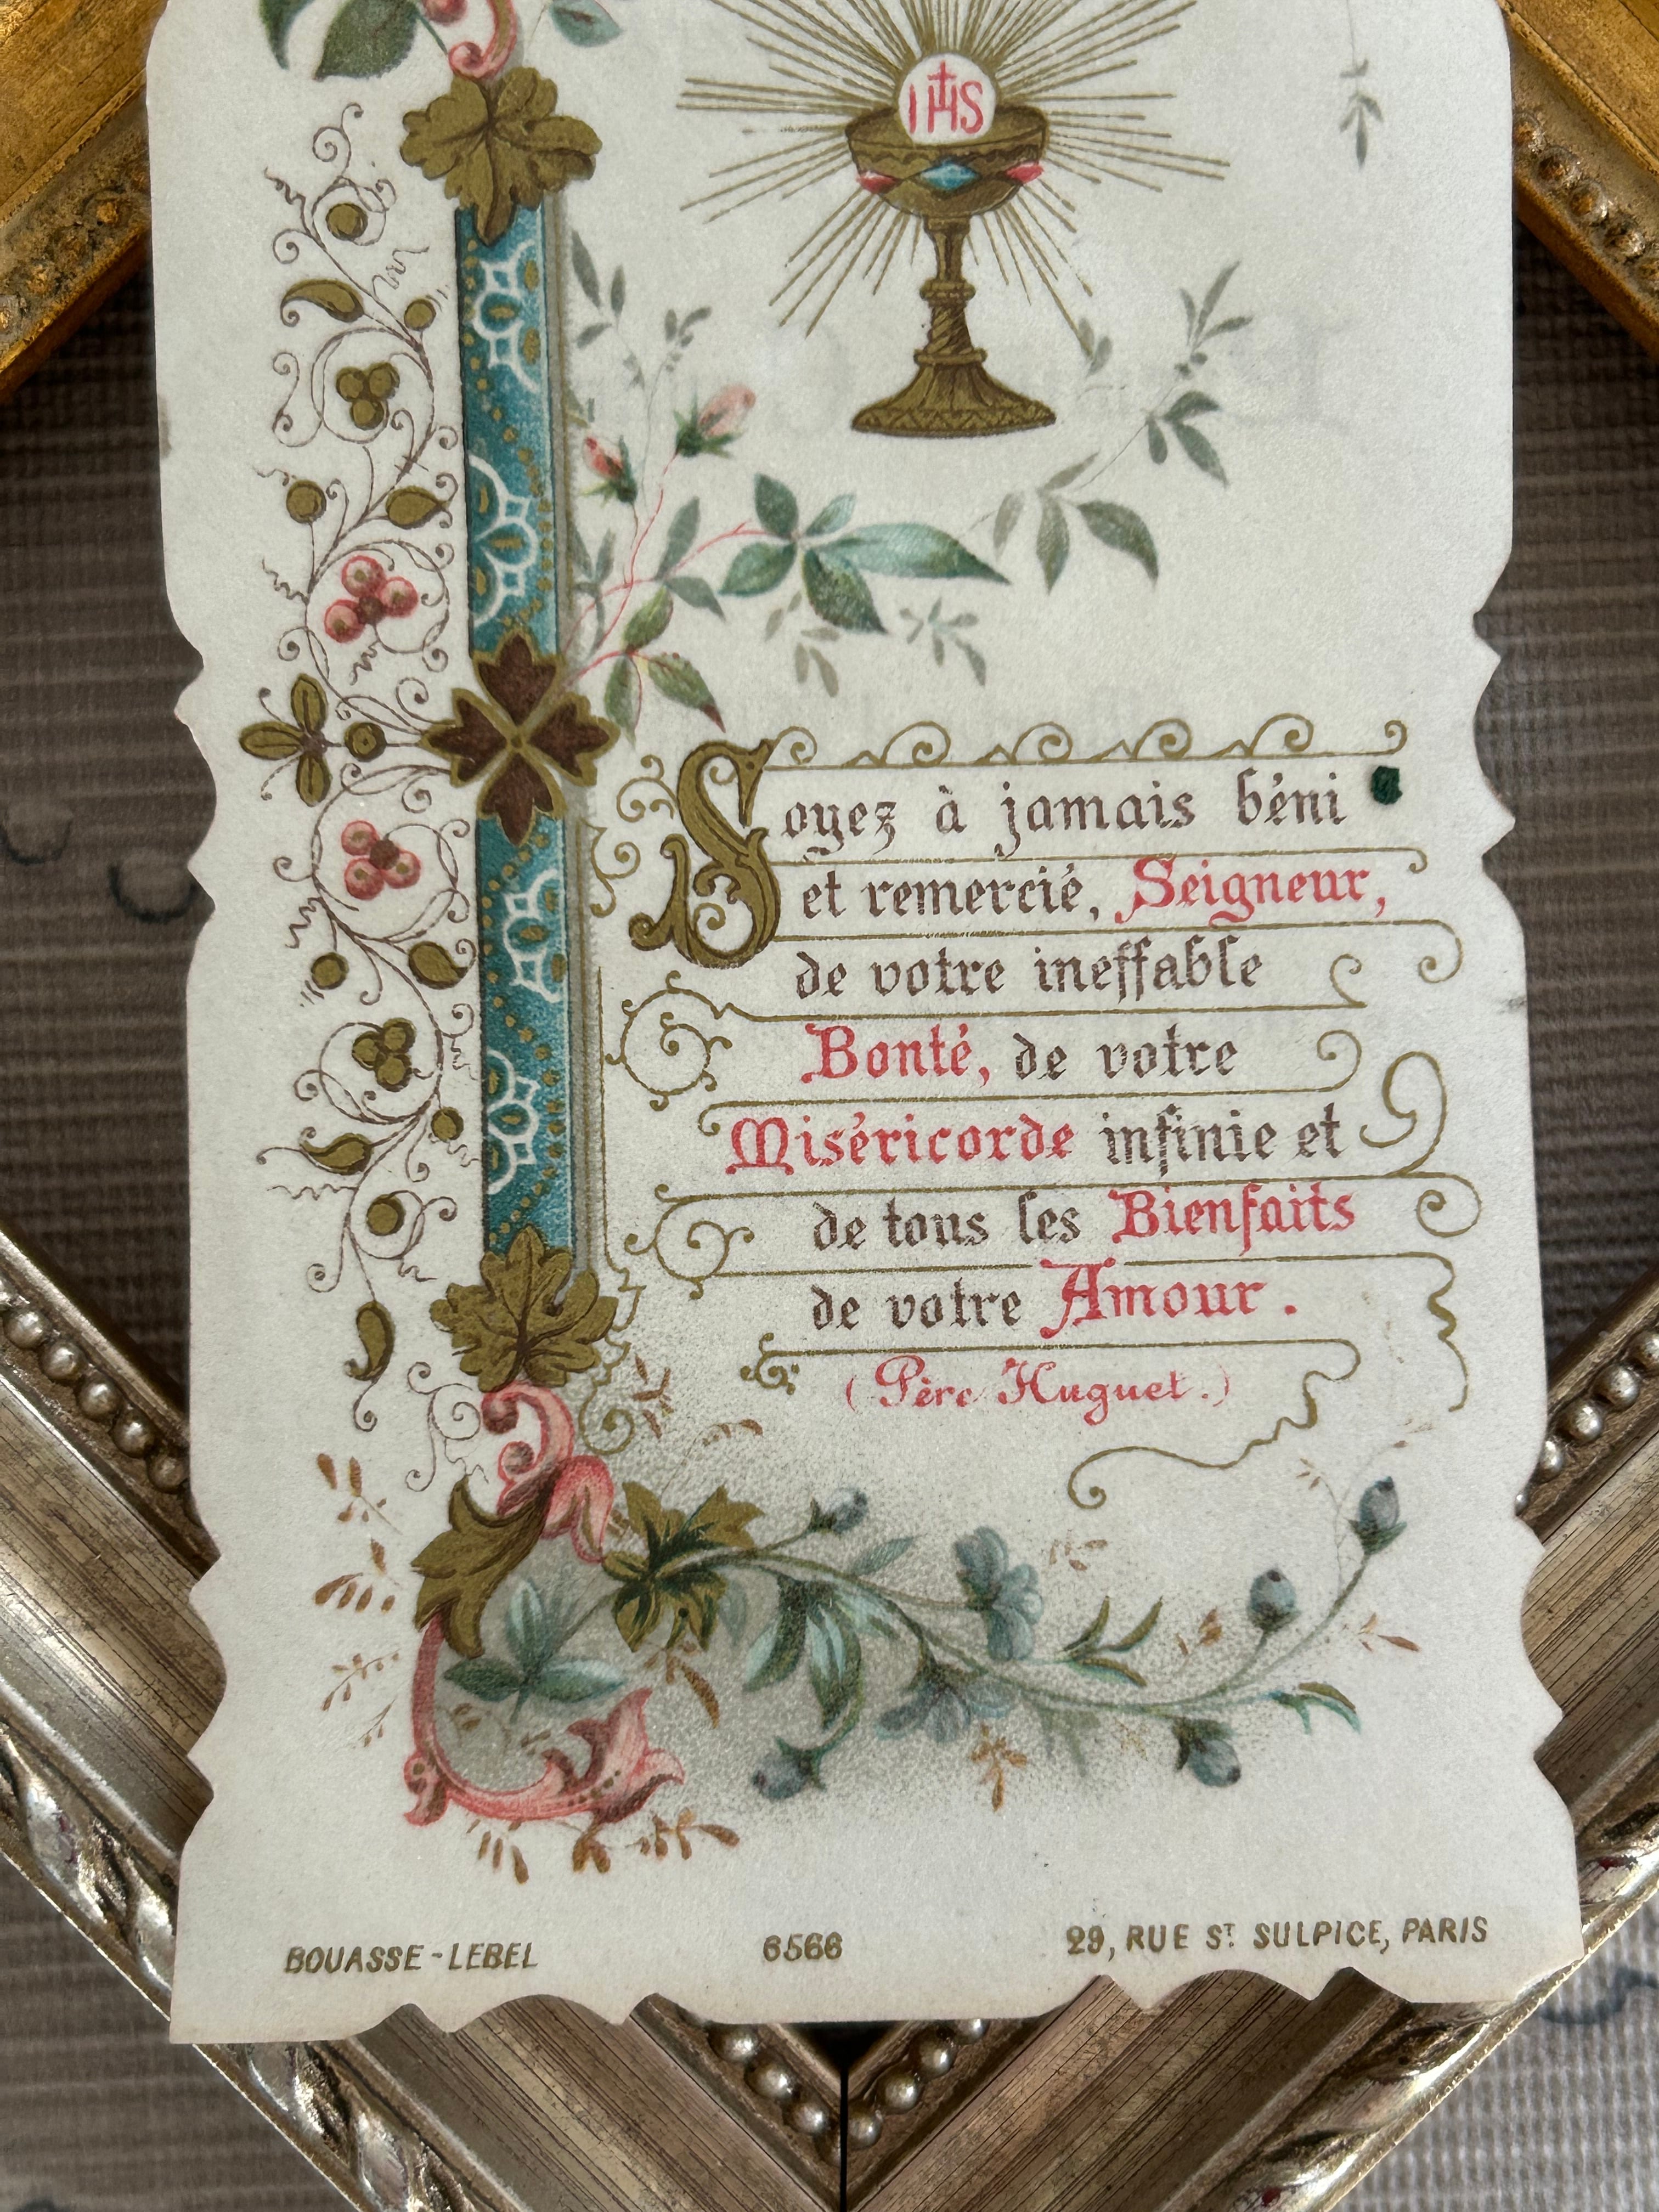 IHS
Soyez à jamais béni
et remercié, Seigneur,
de votre ineffable
Bonté, de votre
Miséricorde infinie et
de tous les Bienfaits
de votre Amour.
(Père Huguet.)
BOUASSE-LEBEL 6566 29, RUE ST SULPICE, PARIS